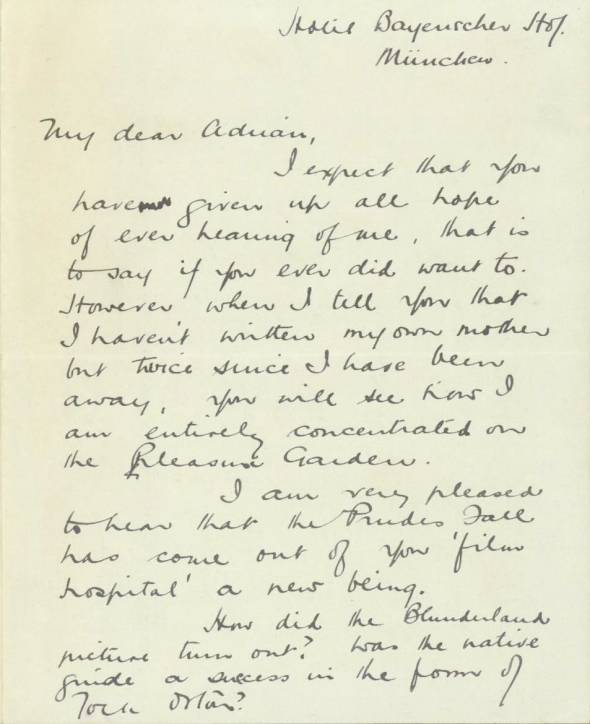 Hotel Bayerischer Hof.
München.
My dear Adrian,
I expect that you
have given up all hope
of ever hearing of me, that is
to say if you ever did want to.
However when I tell you that
I haven't written my own mother
but twice since I have been
away, you will see how I
am entirely concentrated on
the Pleasure Garden.
I am very pleased
to hear that the Prudes Fall
has come out of your 'film
hospital' a new being.
How did the Blunderland
picture turn out? Was the native
guide a success in the form of